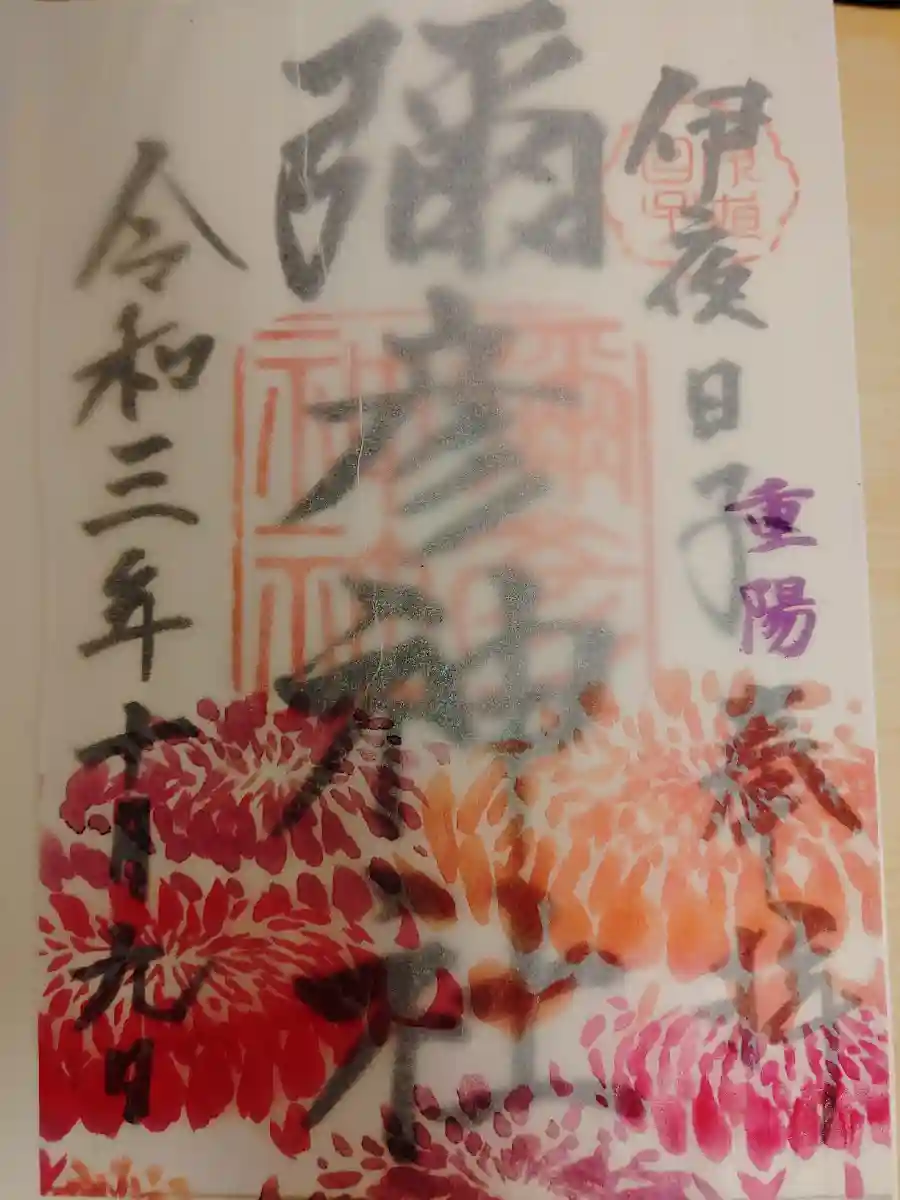 伊夜日子
重陽
参拝
彌彦神社
令和三年十月九日